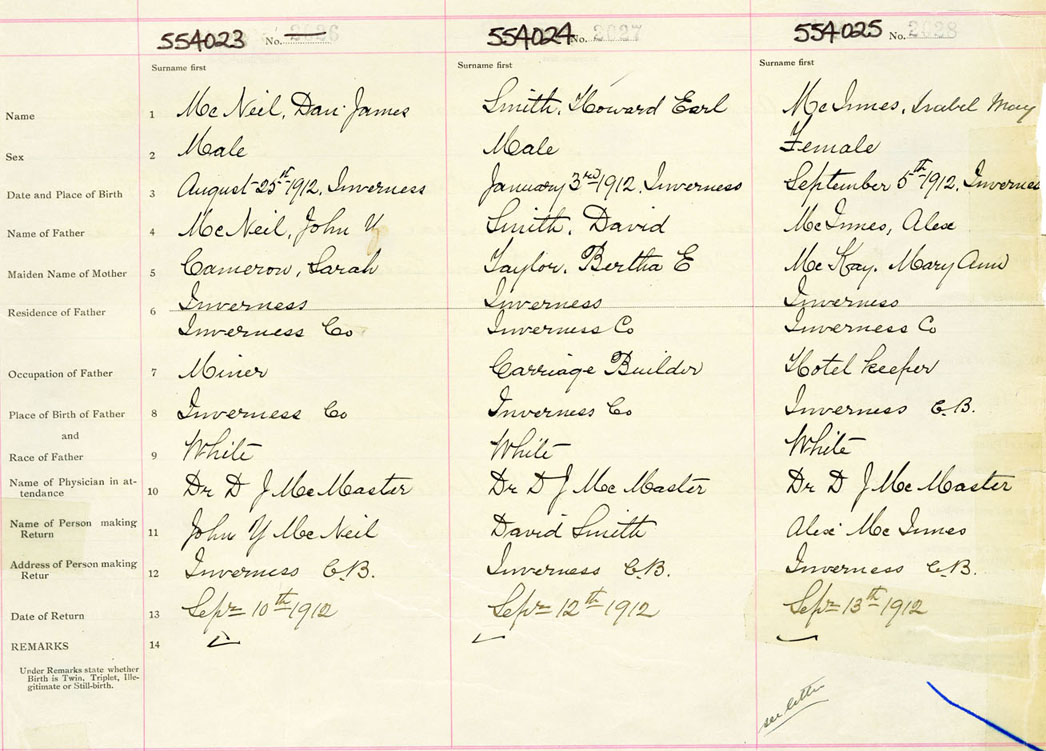 554023 No. 2026 554024 No. 2027 554025 No. 2028
Surname first Surname first Surname first
Name 1 Mc Neil, Dan James Smith, Howard Earl McInnes, Isabel May
Sex 2 Male Male Female
Date and Place of Birth 3 August 25th 1912, Inverness January 3rd 1912, Inverness September 5th 1912, Inverness
Name of Father 4 McNeil, John Y Smith, David McInnes, Alex
Maiden Name of Mother 5 Cameron, Sarah Taylor, Bertha E McKay, Mary Ann
Residence of Father 6 Inverness Inverness Inverness
Inverness Co Inverness Co Inverness Co
Occupation of Father 7 Miner Carriage Builder Hotel keeper
Place of Birth of Father 8 Inverness Co Inverness Co Inverness C.B.
and
Race of Father 9 White White White
Name of Physician in at-
tendance 10 Dr D J McMaster Dr D J McMaster Dr D J McMaster
Name of Person making
Return 11 John Y McNeil David Smith Alex McInnes
Address of Person making
Retur 12 Inverness C.B. Inverness C.B. Inverness C.B.
Date of Return 13 Sepr 10th 1912 Sepr 12th 1912 Sepr 13th 1912
REMARKS 14
Under Remarks state whether
Birth is Twin, Triplet, Ille-
gitimate or Still-birth.
see letter